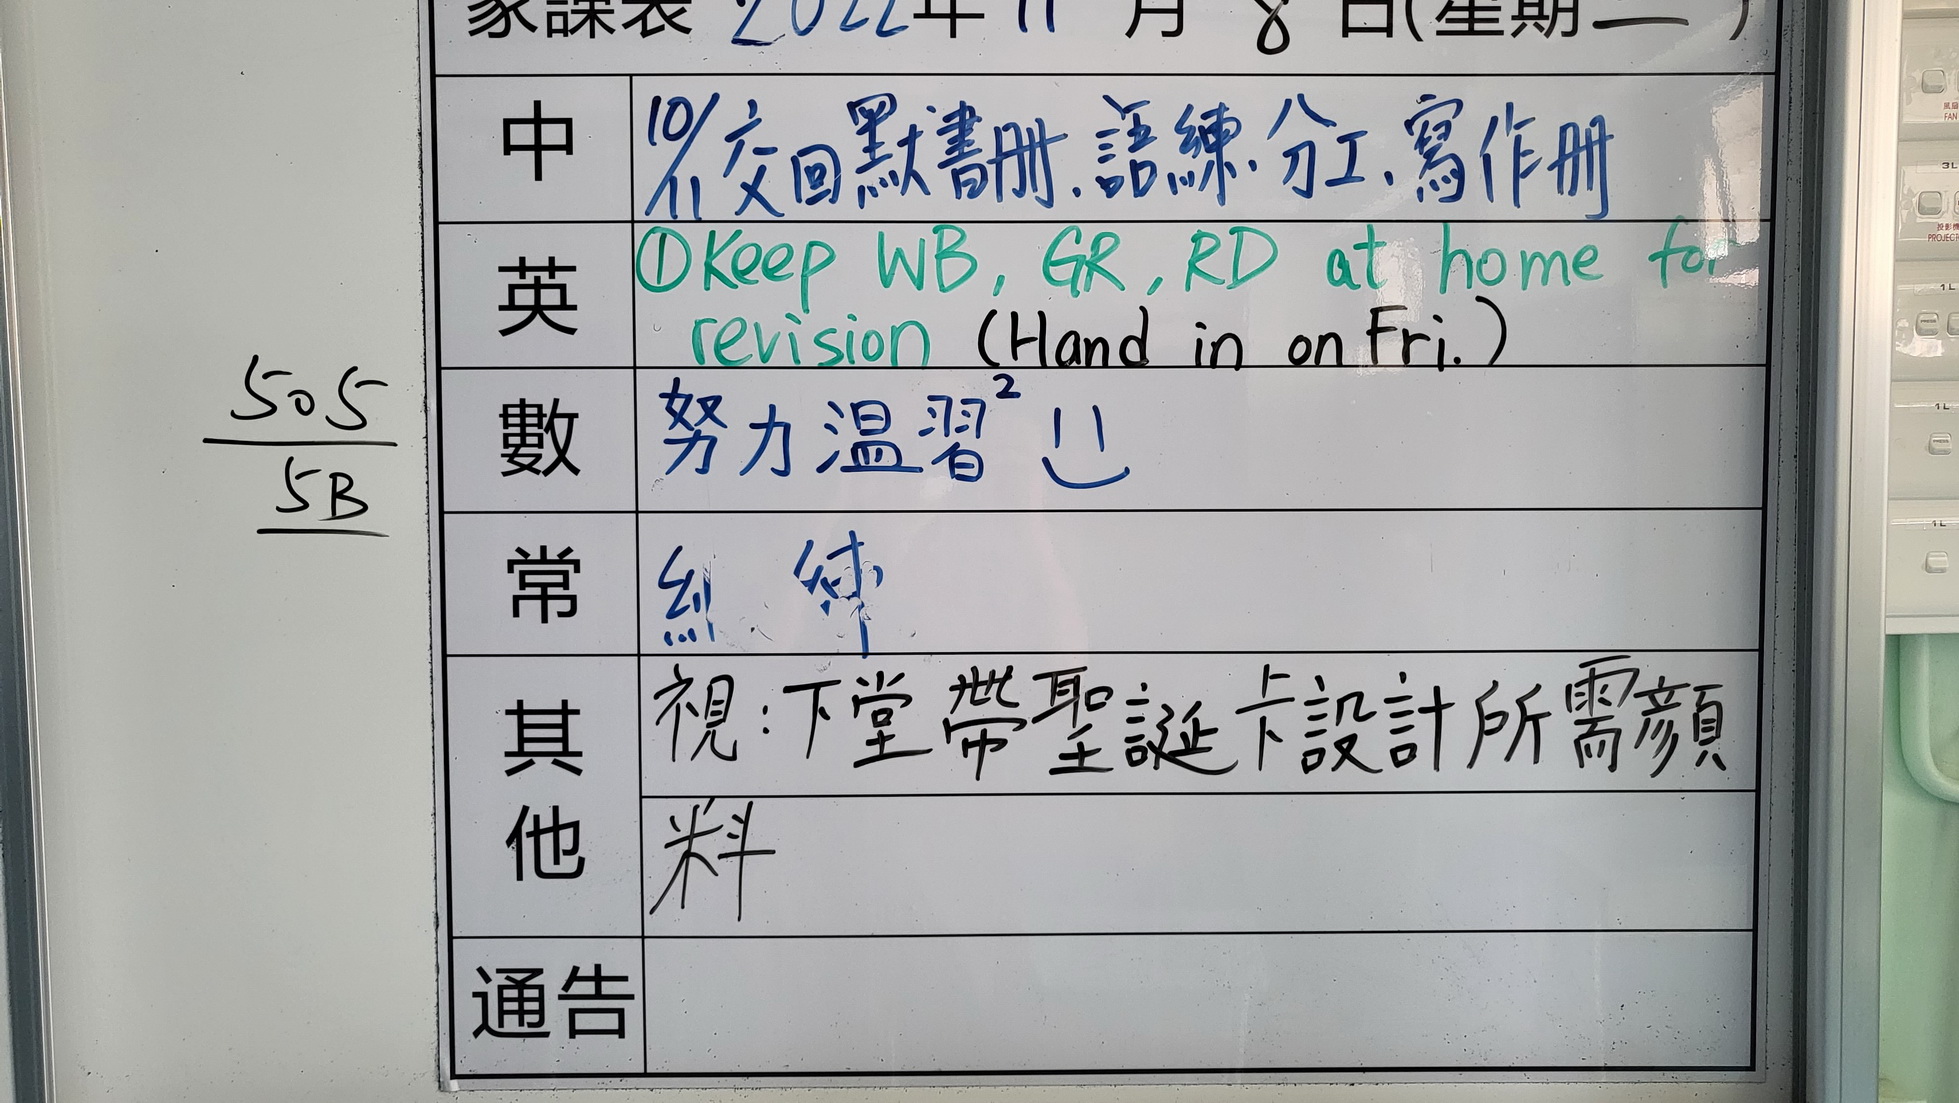 家課表 2022年 11 月 8 日(星期二)
中 10/11 交回默書冊、語練、分工、寫作冊
英 ①Keep WB, GR, RD at home for
revision (Hand in on Fri.)
505
5B
數 努力溫習²
常
其他 視:下堂帶聖誕卡設計所需顏
料
通告
FAN
3L
PROJECT
1L
1L
1L